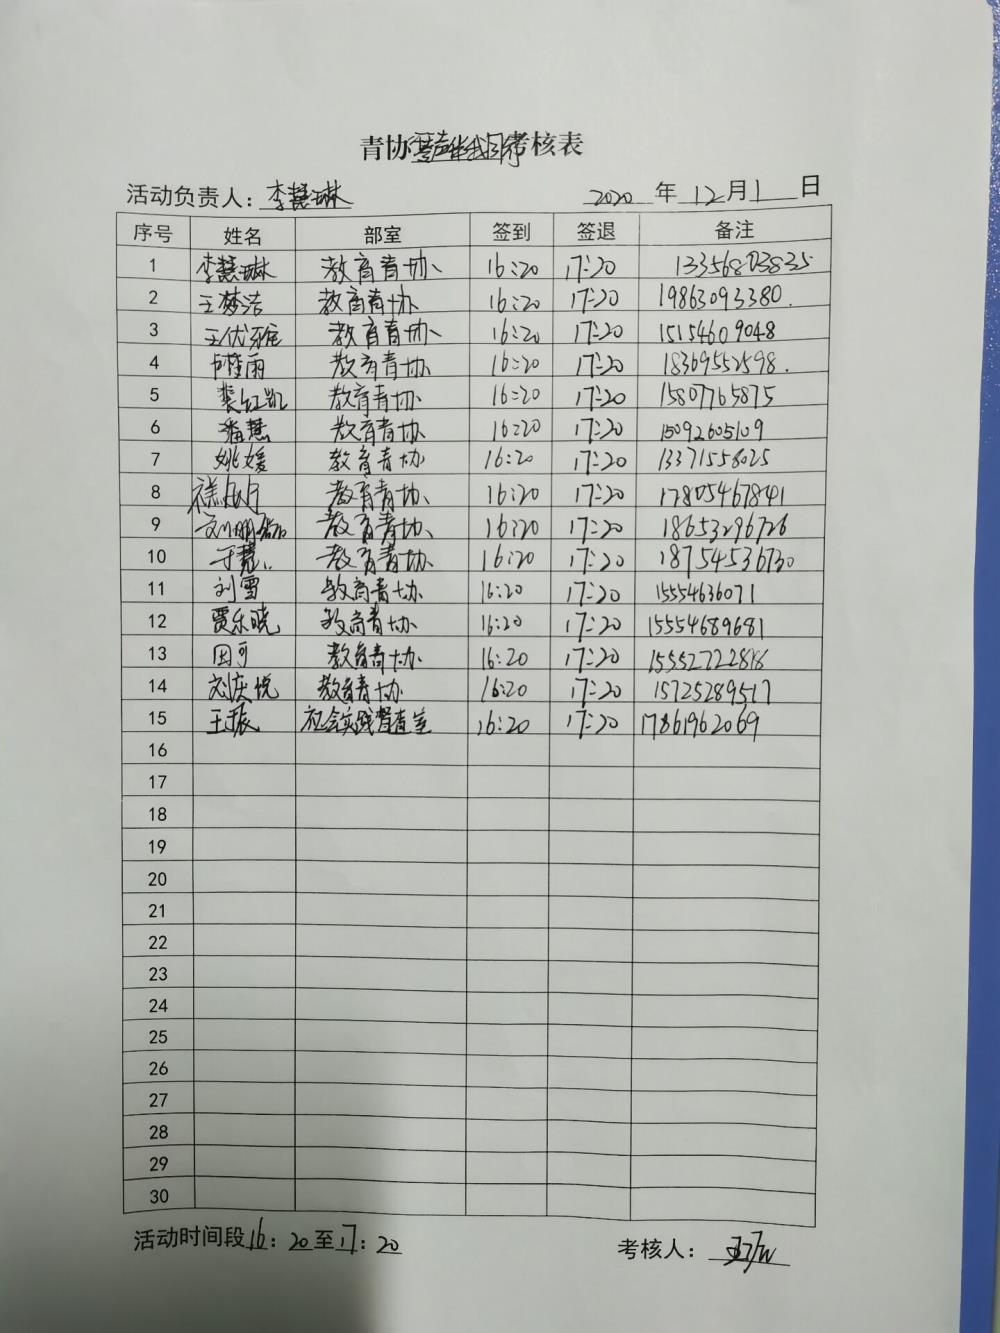 青协琴声伴我同行考核表
活动负责人：李慧琳 2020 年 12 月 1 日
序号 姓名 部室 签到 签退 备注
1 李慧琳 教育青协 16:20 17:20 13356803835
2 王梦浩 教育青协 16:20 17:20 19863093380.
3 王优雅 教育青协 16:20 17:20 15154609048
4 教育青协 16:20 17:20 18369552598.
5 裴红凯 教育青协 16:20 17:20 15807765875
6 潘慧 教育青协 16:20 17:20 15092605109
7 姚媛 教育青协 16:20 17:20 13371558025
8 教育青协 16:20 17:20 17805467841
9 教育青协 16:20 17:20 18653296726
10 于慧 教育青协 16:20 17:20 18754536730
11 刘雪 教育青协 16:20 17:20 15554636071
12 贾乐晓 教育青协 16:20 17:20 15554689681
13 田可 教育青协 16:20 17:20 15552722818
14 刘庆悦 教育青协 16:20 17:20 15725289517
15 王振 社会实践督查室 16:20 17:20 17861962069
16
17
18
19
20
21
22
23
24
25
26
27
28
29
30
活动时间段16：20至17：20 考核人：